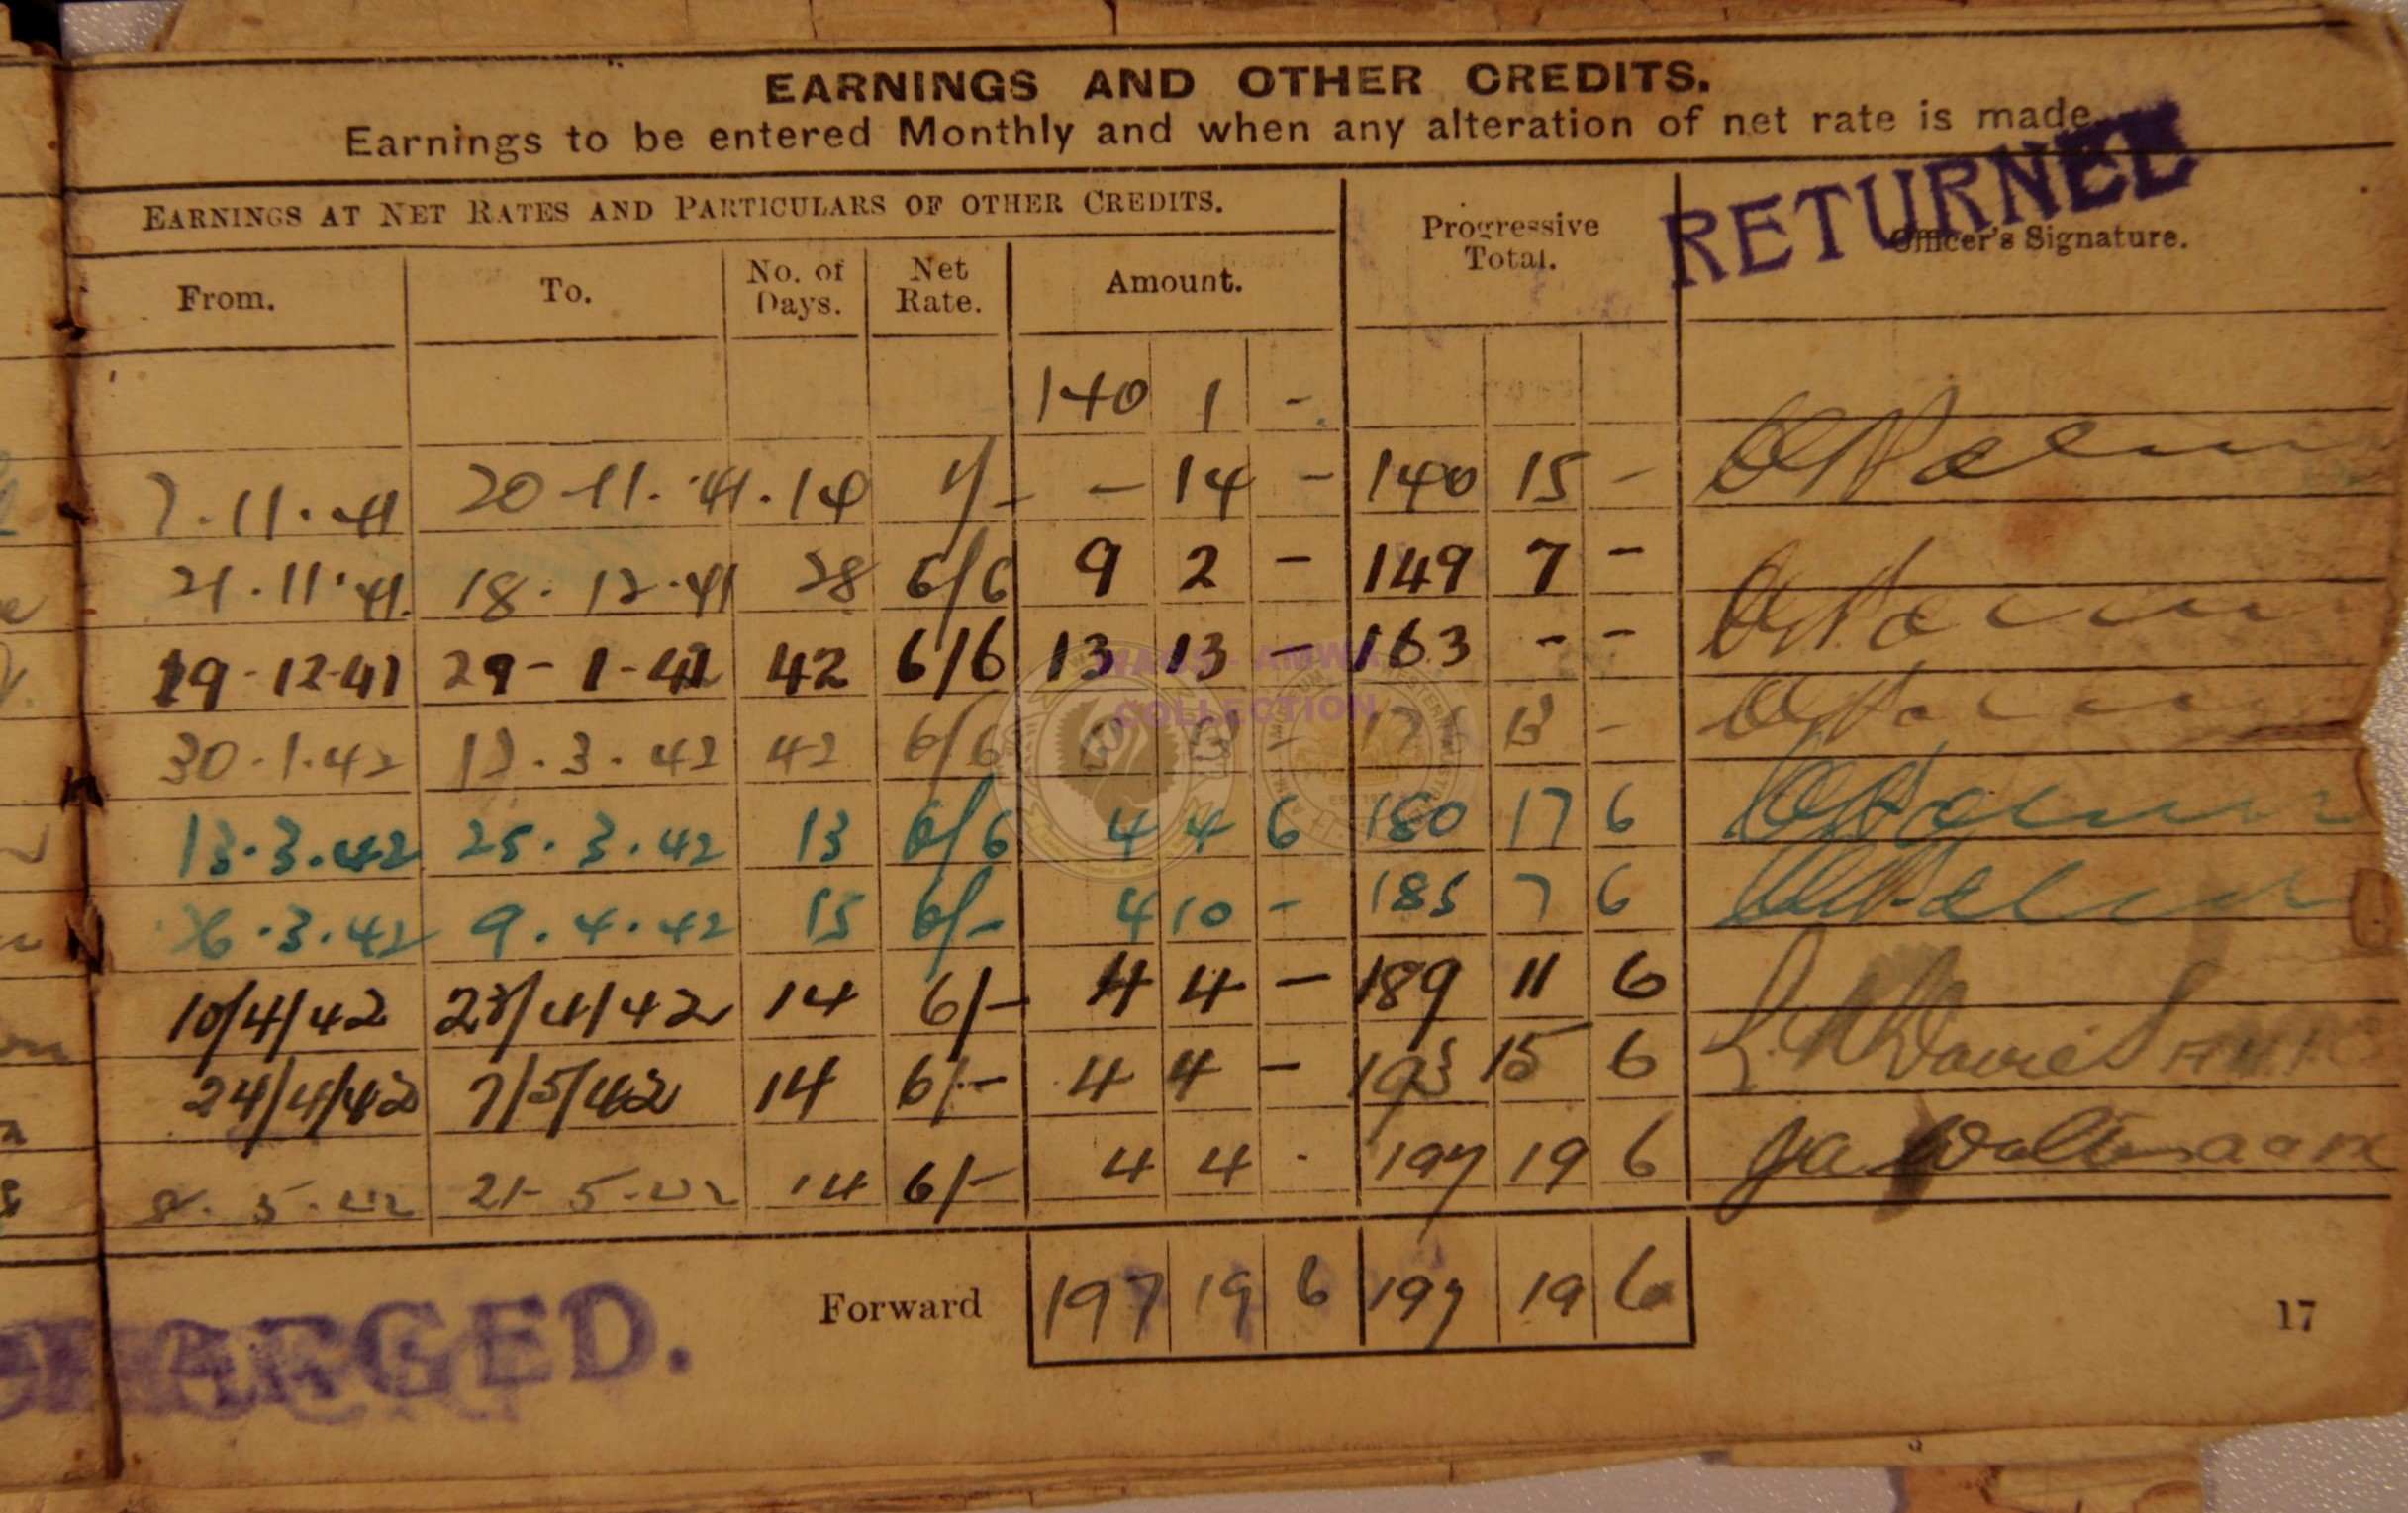 EARNINGS AND OTHER CREDITS.
Earnings to be entered Monthly and when any alteration of net rate is made
RETURNED
EARNINGS AT NET RATES AND PARTICULARS OF OTHER CREDITS. Progressive Total. Officer's Signature.
From. To. No. of Days. Net Rate. Amount.
140 1 -
7.11.41 20-11.41. 14 1/- - 14 - 140 15 -
21.11.41. 18.12.41 28 6/6 9 2 - 149 7 -
19-12-41 29-1-42 42 6/6 13 13 - 163 - -
30.1.42 12.3.42 42 6/6 13 13 - 176 13 -
13.3.42 25.3.42 13 6/6 4 4 6 180 17 6
26.3.42 9.4.42 15 6/- 4 10 - 185 7 6
10/4/42 23/4/42 14 6/- 4 4 - 189 11 6
24/4/42 7/5/42 14 6/- 4 4 - 193 15 6
8.5.42 21-5-42 14 6/- 4 4 . 197 19 6
Forward 197 19 6 197 19 6
ARGED.
17
COLLECTION